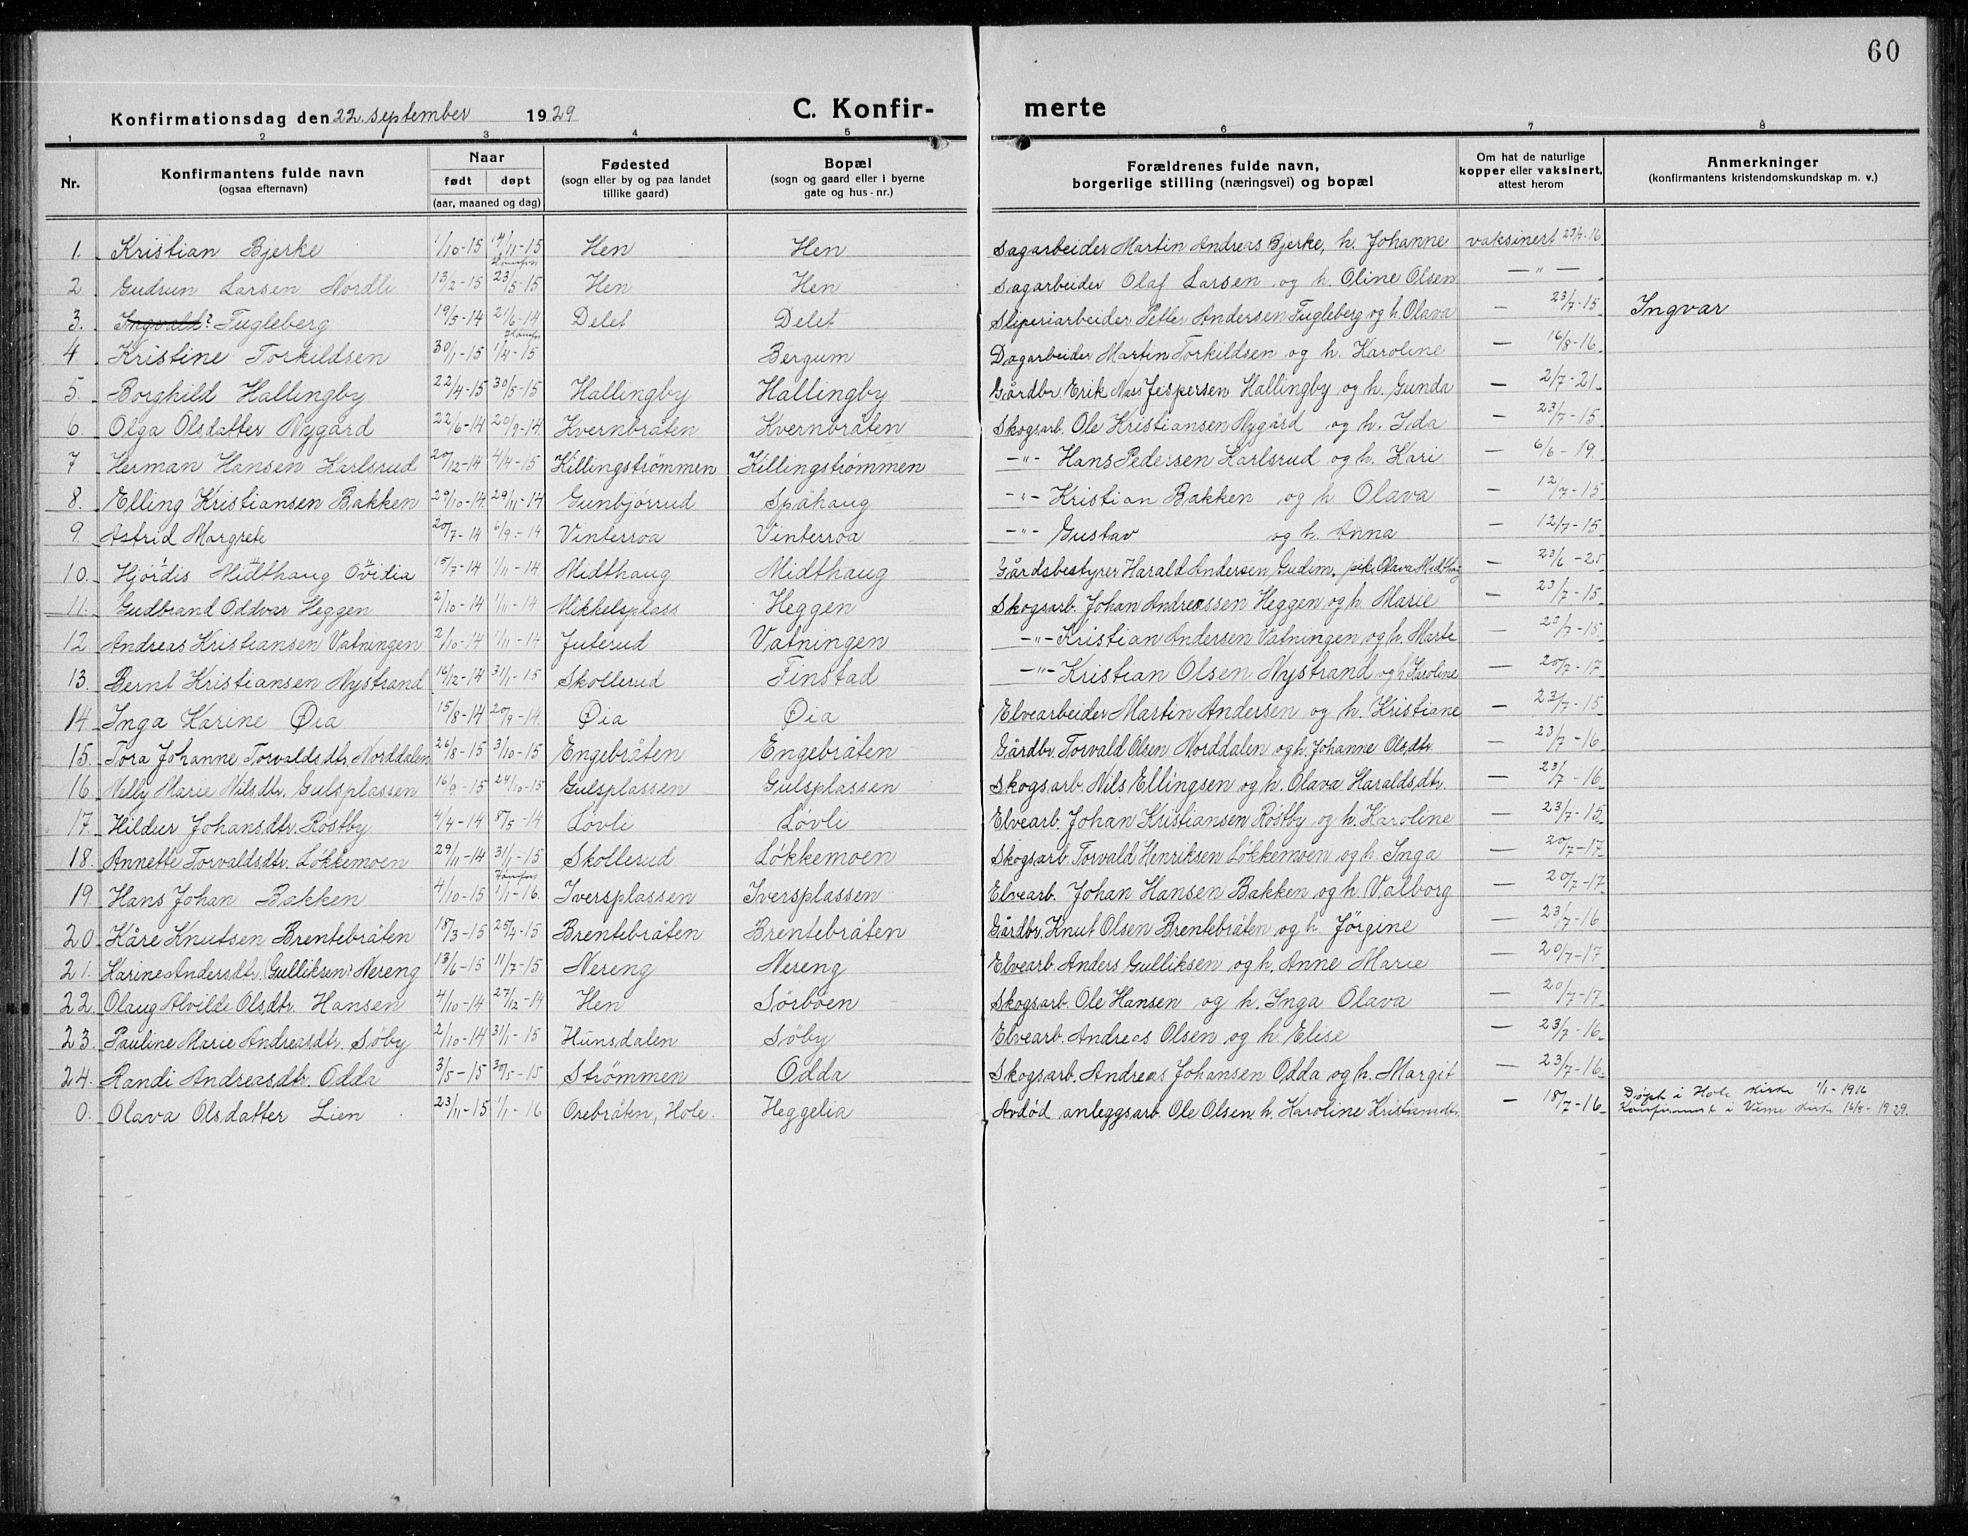 60
Konfirmationsdag den 22. september 1929 C. Konfir- merte
1 2 3 4 5 6 7 8
Nr. Konfirmantens fulde navn (ogsaa efternavn) Naar født døpt (aar, maaned og dag) Fødested (sogn eller by og paa landet tillike gaard) Bopæl (sogn og gaard eller i byerne gate og hus-nr.) Forældrenes fulde navn, borgerlige stilling (næringsvei) og bopæl Om hat de naturlige kopper eller vaksinert, attest herom Anmerkninger (konfirmantens kristendomskundskap m. v.)
1. Kristian Bjerke 1/10-15 14/11-15 Hen Hen Sagarbeider Martin Andreas Bjerke, h. Johanne vaksinert 23/7-16
2 Gudrun Larsen Nordli 13/2-15 23/5-15 Hen Hen Sagarbeider Olaf Larsen og h. Oline Olsen — " —
3. Ingvald? Fugleberg 19/5-14 21/6-14 Delet Delet Sliperiarbeider Petter Andersen Fugleberg og h. Olava — 23/7-15 Ingvar
4 Kristine Torkildsen 30/1-15 1/4-15 Bergum Dagarbeider Martin Torkildsen og h. Karoline — 16/8-16
5. Borghild Hallingby 22/4-15 30/5-15 Hallingby Hallingby Gårdbr. Erik Jespersen Hallingby og h. Gunda — 2/7-21
6. Olga Olsdatter Nygård 22/6-14 20/9-14 Kvernbråten Kvernbråten Skogsarb. Ole Kristiansen Nygård og h. Ida — 23/7-15
7 Herman Hansen Karlsrud 20/12-14 4/4-15 Killingstrømmen Killingstrømmen -"- Hans Pedersen Karlsrud og h. Kari — 6/6-19
8. Elling Kristiansen Bakken 29/10-14 29/11-14 Gunbjørrud Spåhaug -"- Kristian Bakken og h Olava — 12/7-15
9. Astrid Margrete 20/7-14 6/9-14 Vinterroa Vinterroa -"- Gustav og h. Anna — 12/7-15
10. Hjørdis Midthaug Ovidia 15/7-14 1/11-14 Midthaug Midthaug Gårdsbestyrer Harald Andersen Gudim, pike Olava Midthaug — 23/6-25
11. Gudbrand Oddvar Heggen 2/10-14 1/11-14 Mikkelsplass Heggen Skogsarb. Johan Andreassen Heggen og h. Marie — 23/7-15
12 Andreas Kristiansen Vatningen 2/10-14 1/11-14 Juterud Vatningen -"- Kristian Andersen Vatningen og h. Marte — 23/7-15
13. Bernt Kristiansen Nystrand 16/12-14 31/1-15 Skollerud Finstad -"- Kristian Olsen Nystrand og h. Karoline — 20/7-17
14. Inga Karine Øia 15/8-14 20/9-14 Øia Øia Elvearbeider Martin Andersen og h. Kristiane — 23/7-15
15. Tora Johanne Torvaldsdtr. Norddalen 26/8-15 3/10-15 Engebråten Engebråten Gårdbr. Torvald Olsen Norddalen og h. Johanne Olsdtr. — 23/7-16
16 Nelly Marie Nilsdtr. Gulsplassen 16/9-15 24/10-15 Gulsplassen Gulsplassen Skogsarb. Nils Ellingsen og h. Olava Haraldsdtr. — 23/7-16
17. Hildur Johansdtr. Røstby 4/4-14 8/5-14 Løvli Løvli Elvearb. Johan Kristiansen Røstby og h. Karoline — 23/7-15
18. Annette Torvaldsdtr. Løkkemoen 29/11-14 31/1-15 Skollerud Løkkemoen Skogsarb. Torvald Henriksen Løkkemoen og h. Inga — 20/7-17
19. Hans Johan Bakken 4/10-15 1/1-16 Iversplassen Iversplassen Elvearb. Johan Hansen Bakken og h. Valborg — 20/7-17
20 Kåre Knutsen Brentebråten 18/3-15 25/4-15 Brentebråten Brentebråten Gårdbr. Knut Olsen Brentebråten og h. Jørgine — 23/7-16
21. Karine Andersdtr. (Gulliksen) Nereng 13/6-15 11/7-15 Nereng Nereng Elvearb. Anders Gulliksen og h. Anne Marie — 20/7-17
22. Olaug Alvilde Olsdtr. Hansen 4/10-14 27/12-14 Hen Sørboen Skogsarb. Ole Hansen og h. Inga Olava — 20/7-17
23. Pauline Marie Andreasdtr. Søby 2/10-14 31/1-15 Hunsdalen Søby Elvearb. Andreas Olsen og h Elise — 23/7-16
24. Randi Andreasdtr. Odda 3/5-15 30/5-15 Strømmen Odda Skogsarb. Andreas Johansen Odda og h. Margit — 23/7-16
0. Olava Olsdatter Lien 23/11-15 1/1-16 Orebråten, Hole. Heggelia Avdød anleggsarb. Ole Olsen h. Karoline Kristiansdtr. — 18/7-16 Døpt i Hole kirke 1/1-1916
Konfirmert i Vime kirke 16/8-1929.